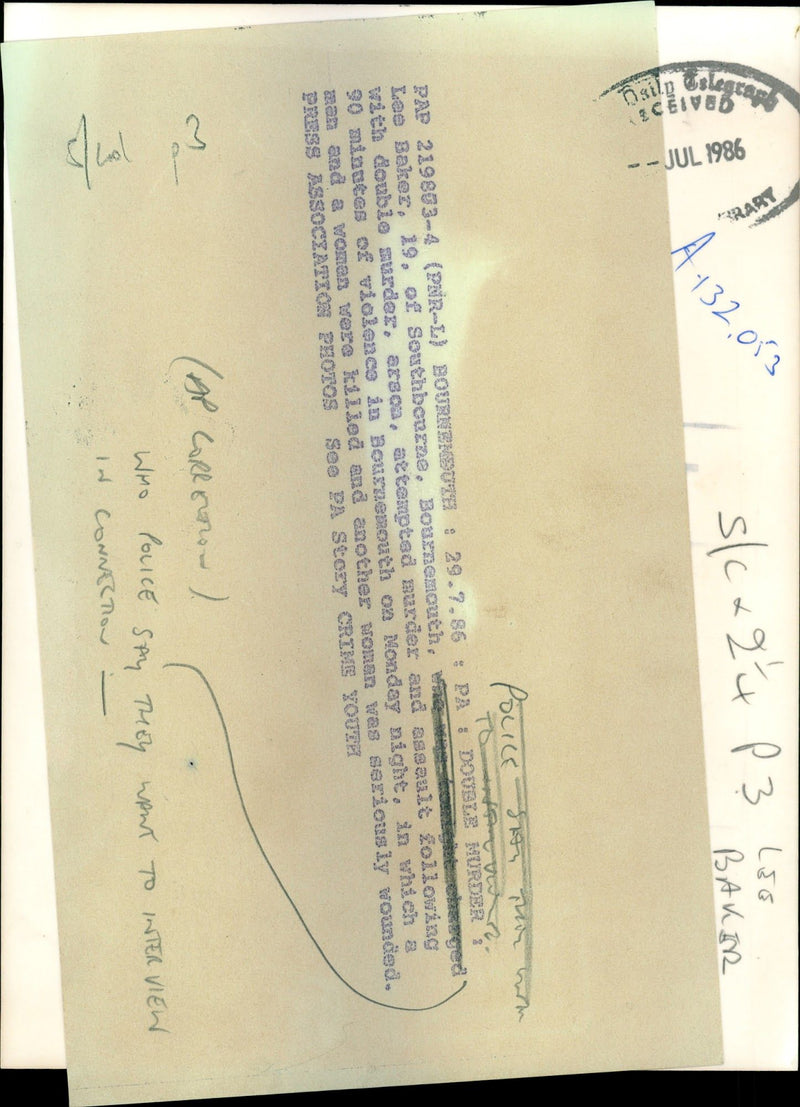 Daily Telegraph
RECEIVED
-- JUL 1986
LIBRARY
A.132.053
S/C x 2¼ P3
LEE
BAKER
POLICE SAY THEY WANT
TO INTERVIEW
PAP 219883-4 (PNR-L) BOURNEMOUTH : 29.7.86 : PA : DOUBLE MURDER :
Lee Baker, 19, of Southbourne, Bournemouth, who was tonight charged
with double murder, arson, attempted murder and assault following
90 minutes of violence in Bournemouth on Monday night, in which a
man and a woman were killed and another woman was seriously wounded.
PRESS ASSOCIATION PHOTOS See PA Story CRIME YOUTH
(AP CORRECTION)
WHO POLICE SAY THEY WANT TO INTERVIEW
IN CONNECTION